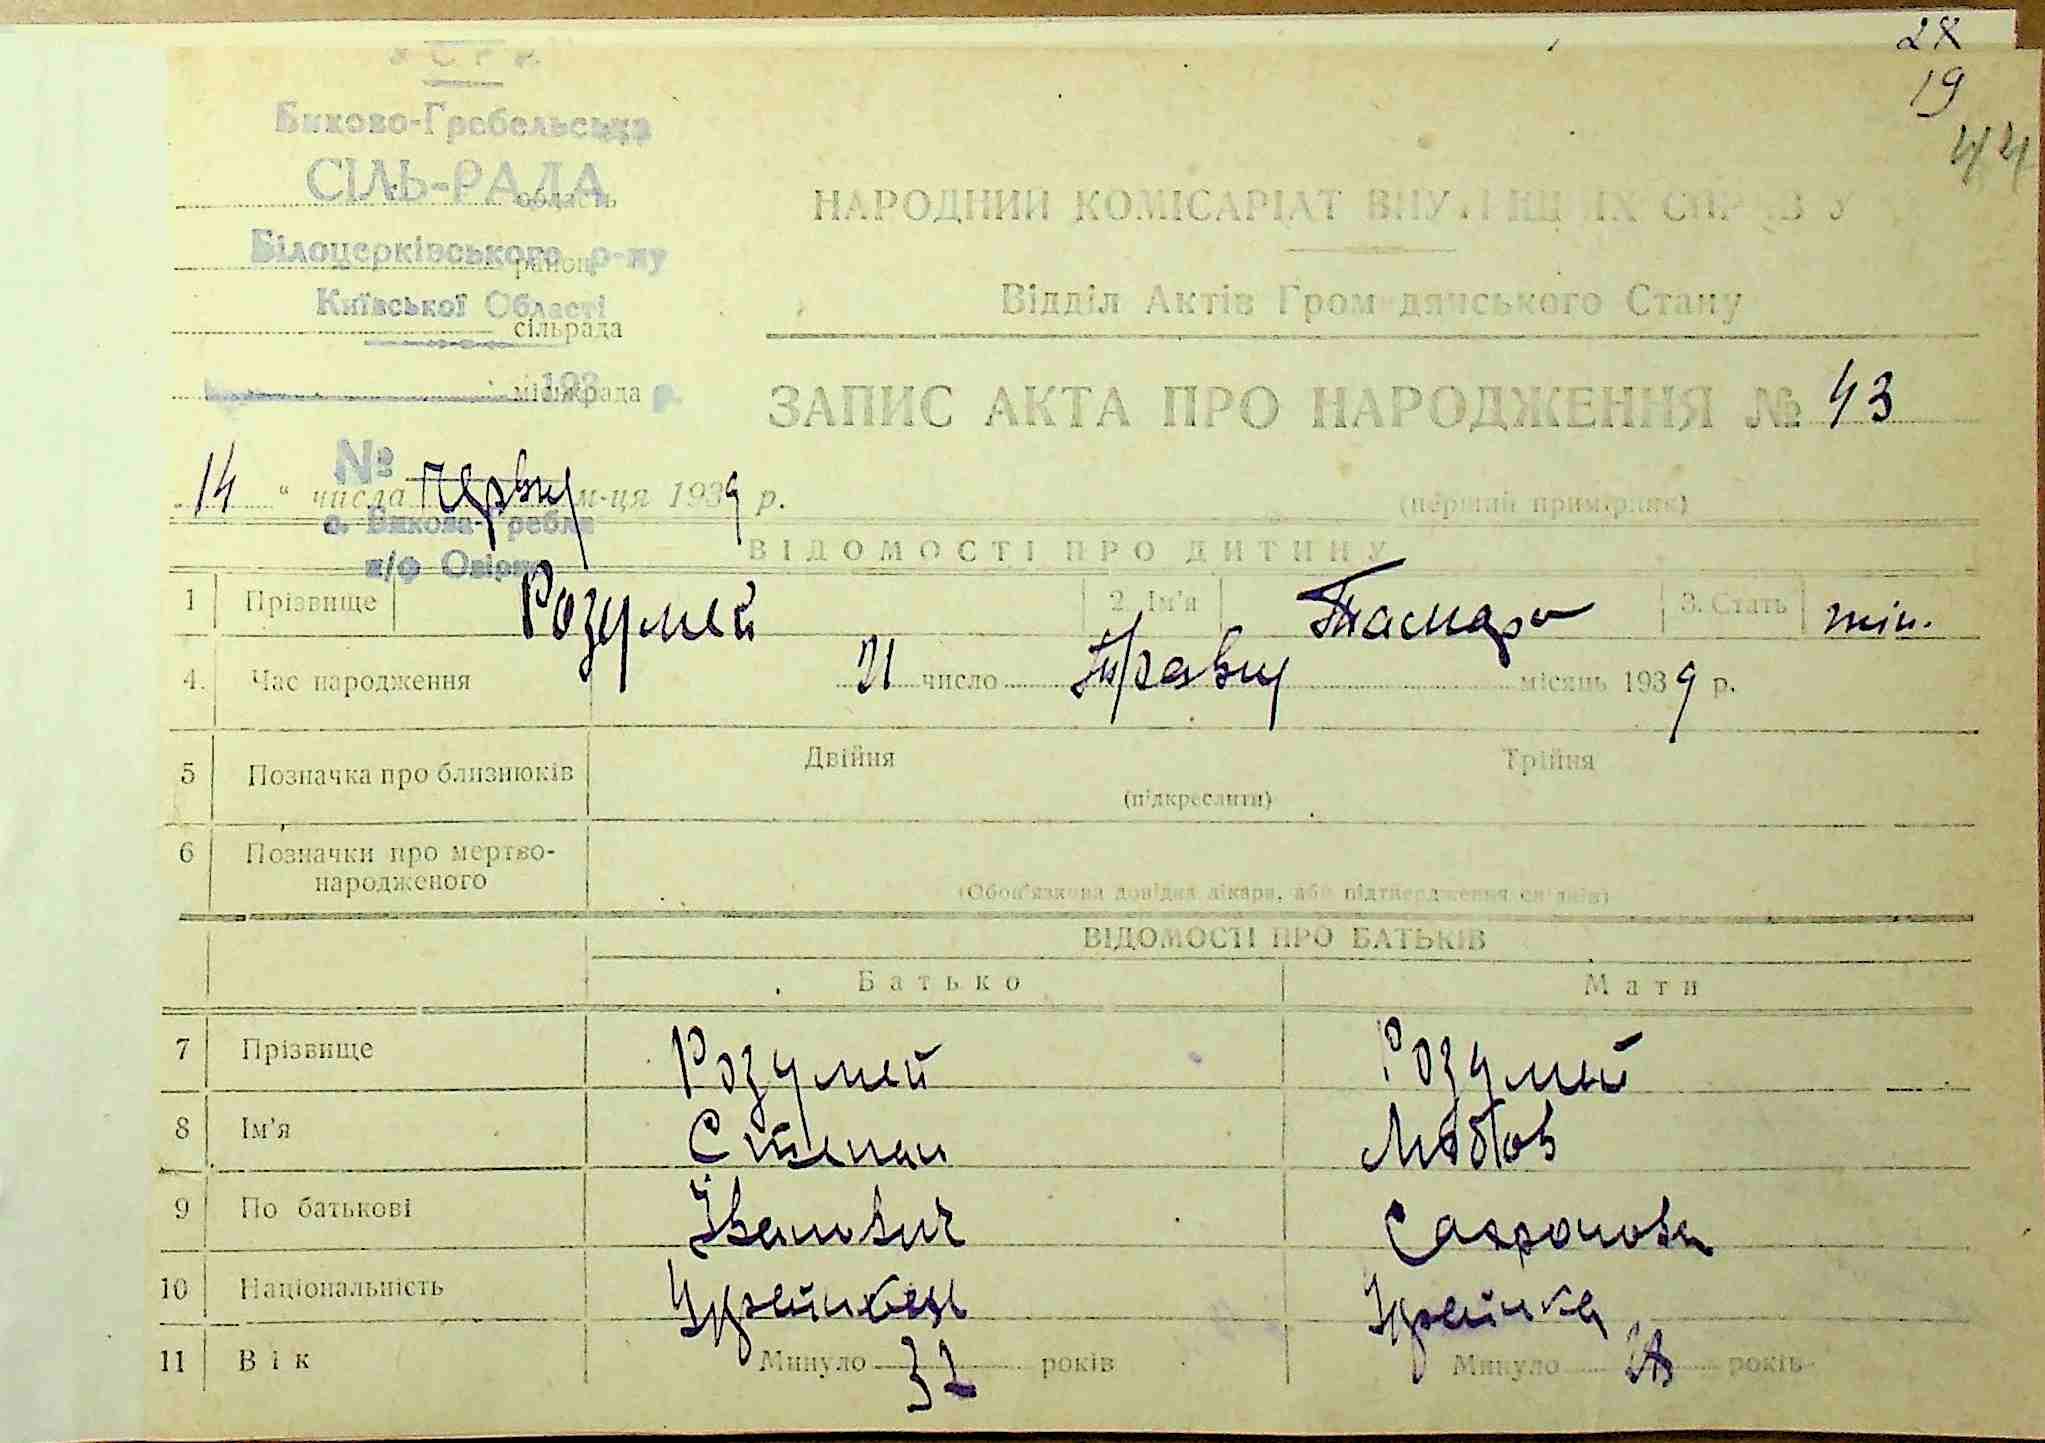 28
19
44
УСРР
Биково-Гребельська
СІЛЬ-РАДА
область
Білоцерківського р-ну
район
Київської Області
сільрада
193 р.
міськрада
НАРОДНИЙ КОМІСАРІАТ ВНУТРІШНІХ СПРАВ У
Відділ Актів Громадянського Стану
ЗАПИС АКТА ПРО НАРОДЖЕННЯ № 43
№
14 " числа червня м-ця 1939 р.
(перший примірник)
с. Бикова-Гребля
п/ф
ВІДОМОСТІ ПРО ДИТИНУ
1 Прізвище Розумей 2. Ім'я Тамара 3. Стать жін.
4. Час народження 21 число Травня місяць 1939 р.
5 Позначка про близнюків Двійня Трійня
(підкреслити)
6 Позначки про мертво-
народженого
(Обов'язкова довідка лікаря, або підтвердження свідків)
ВІДОМОСТІ ПРО БАТЬКІВ
Батько Мати
7 Прізвище Розумей Розумей
8 Ім'я Степан Любов
9 По батькові Іванович Сафронова
10 Національність Українець Українка
11 Вік Минуло 32 років Минуло 28 років